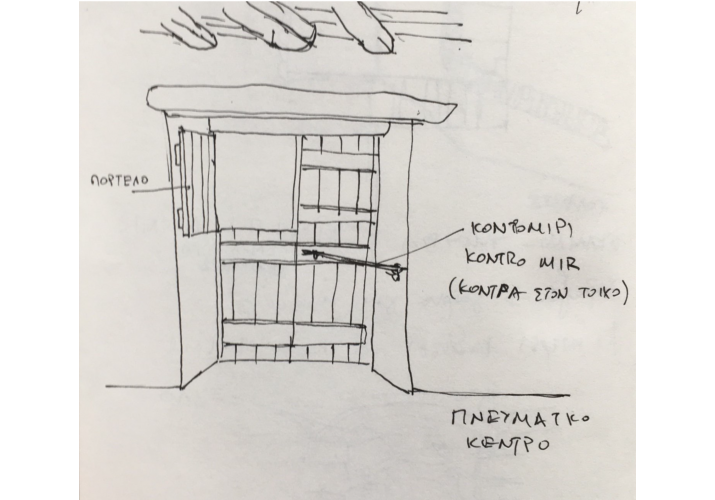 ΠΟΡΤΕΛΟ
ΚΟΝΤΟΜΙΡΙ
KONTRO MIR
(ΚΟΝΤΡΑ ΣΤΟΝ ΤΟΙΚΟ)
ΠΝΕΥΜΑΤΚΟ
ΚΕΝΤΡΟ